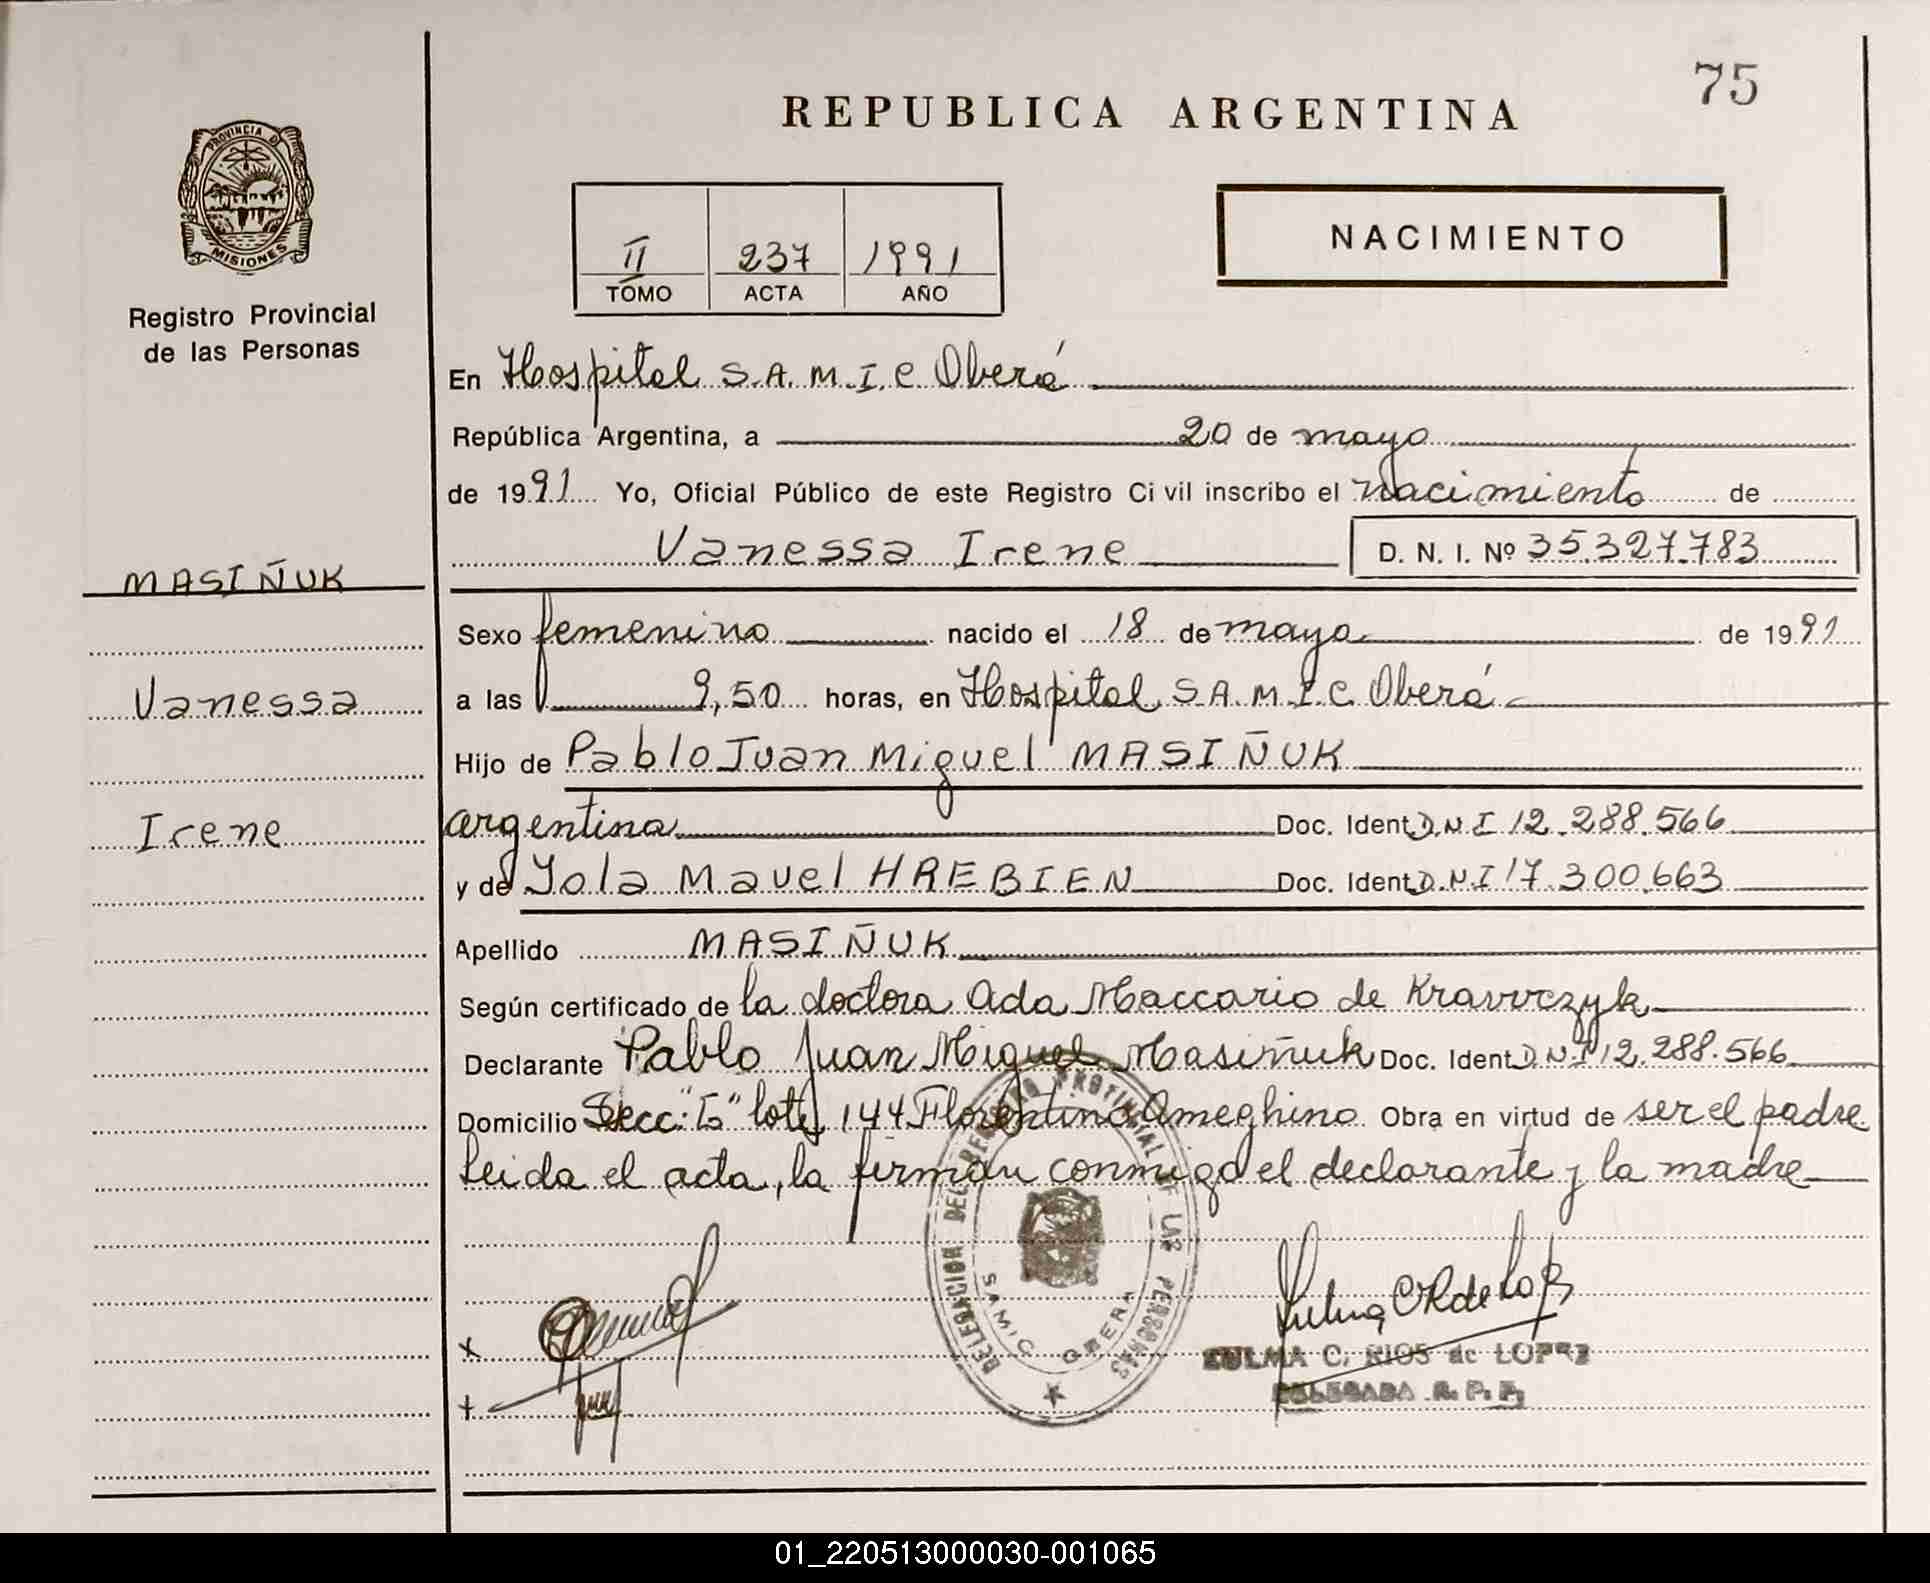 75
REPUBLICA ARGENTINA
PROVINCIA DE
MISIONES
Registro Provincial
de las Personas
II 237 1991
TOMO ACTA AÑO
NACIMIENTO
En Hospital S.A.M.I.C Oberá
República Argentina, a 20 de mayo
de 1991 Yo, Oficial Público de este Registro Civil inscribo el nacimiento de
Vanessa Irene D. N. I. Nº 35.327.783
MASIÑUK
Vanessa
Irene
Sexo femenino nacido el 18 de mayo de 1991
a las 9,50 horas, en Hospital S.A.M.I.C. Oberá
Hijo de Pablo Juan Miguel MASIÑUK
argentina Doc. Ident. D.N.I 12.288.566
y de Yola Mavel HREBIEN Doc. Ident. D.N.I 17.300.663
Apellido MASIÑUK
Según certificado de la doctora Ada Maccario de Kravvczyk
Declarante Pablo Juan Miguel Masiñuk Doc. Ident D.N.I 12.288.566
Domicilio Secc: lote 144 Florentino Ameghino Obra en virtud de ser el padre
Leida el acta, la firman conmigo el declarante y la madre
DELEGACION DEL REGISTRO PROVINCIAL DE LAS PERSONAS
SAMIC OBERA
ZULMA C. RIOS de LOPEZ
DELEGADA R. P. P.
01_220513000030-001065